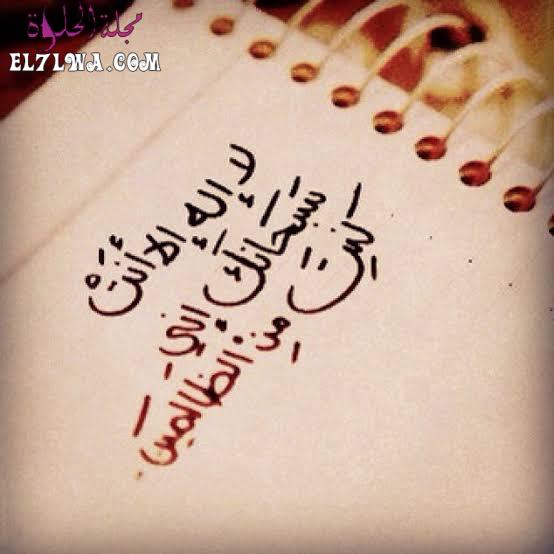 مجلة الحلوة
EL7LWA.COM
لا إله إلا أنتَْ
سُبْحَانَكَ إِنِّي
كُنتُ مِنَ الظالمين